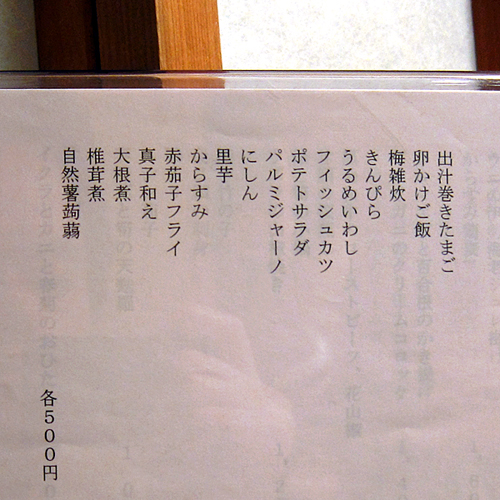 出汁巻きたまご
卵かけご飯
梅雑炊
きんぴら
うるめいわし
フィッシュカツ
ポテトサラダ
パルミジャーノ
にしん
里芋
からすみ
赤茄子フライ
真子和え
大根煮
椎茸煮
自然薯蒟蒻
各500円